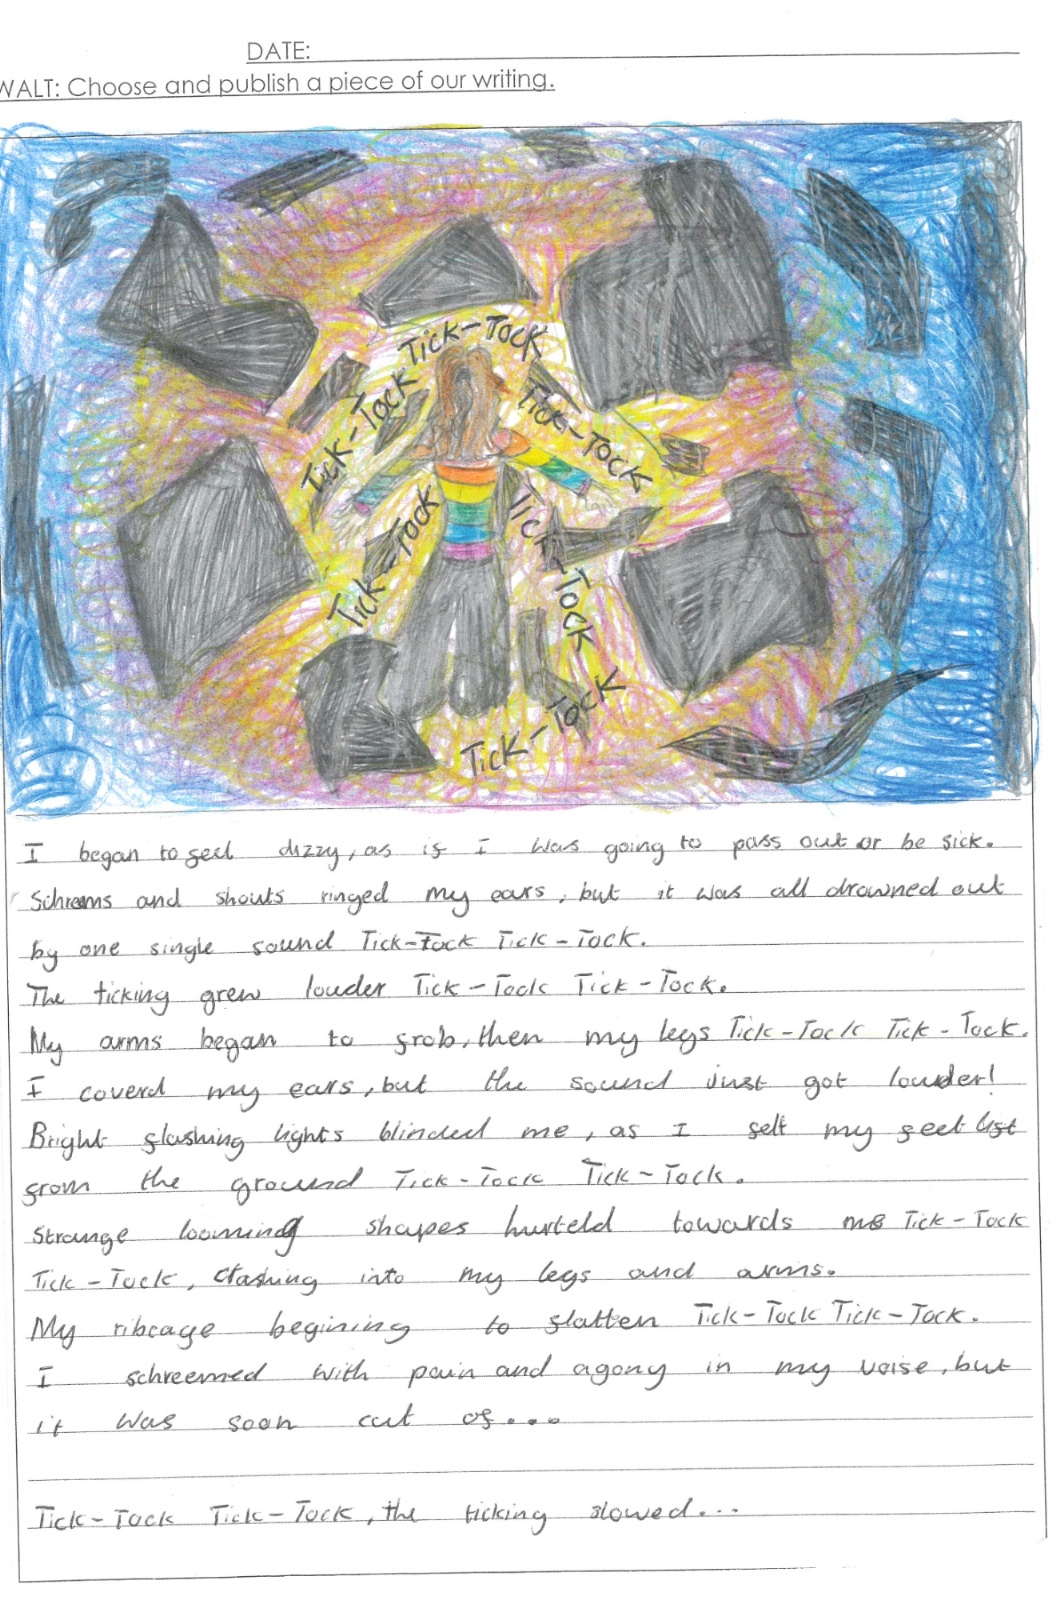 DATE:
WALT: Choose and publish a piece of our writing.
Tick-Tock
Tick-Tock
Tick-Tock
Tick-Tock
Tick-Tock
Tick-Tock
I began to feel dizzy, as if I was going to pass out or be sick.
Schreems and shouts ringed my ears, but it was all drowned out
by one single sound Tick-Tock Tick-Tock.
The ticking grew louder Tick-Tock Tick-Tock.
My arms began to frob, then my legs Tick-Tock Tick-Tock.
I coverd my ears, but the sound just got louder!
Bright flashing lights blinded me, as I felt my feet lift
from the ground Tick-Tock Tick-Tock.
Strange looming shapes hurteld towards me Tick-Tock
Tick-Tock, Crashing into my legs and arms.
My ribcage begining to flatten Tick-Tock Tick-Tock.
I schreemed with pain and agony in my voise, but
it was soon cut of...
Tick-Tock Tick-Tock, the ticking slowed...